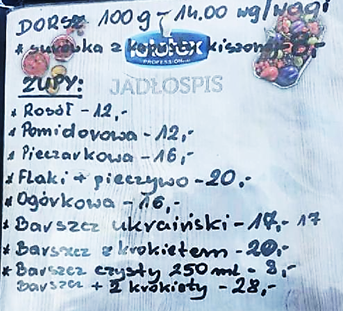 DORSZ 100g - 14.00 wg/wagi
* surówka z kapusty kiszonej
PROFESSIONAL
JADŁOSPIS
ZUPY:
* Rosół - 12,-
* Pomidorowa - 12,-
* Pieczarkowa - 16,-
* Flaki + pieczywo - 20,-
* Ogórkowa - 16,-
* Barszcz ukraiński - 17,- 17
* Barszcz z krokietem - 20,-
* Barszcz czysty 250 ml - 8,-
Barszcz + 2 krokiety - 28,-